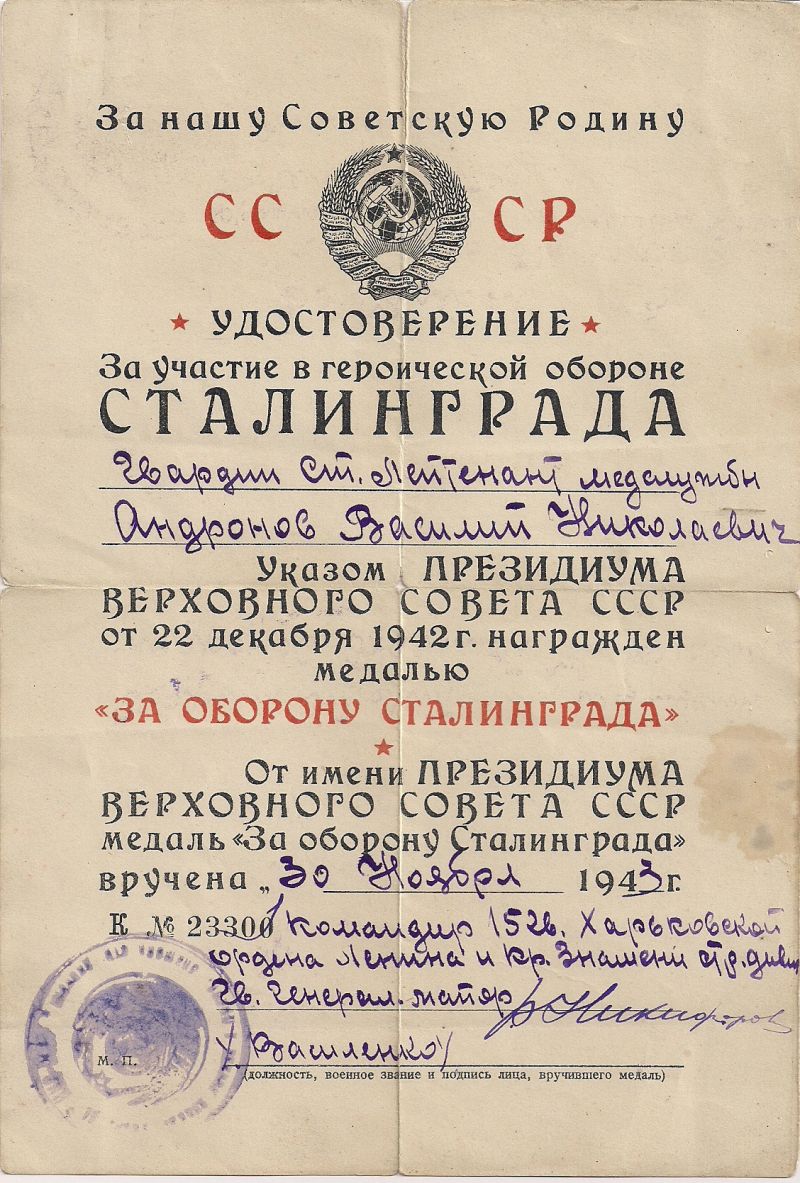 За нашу Советскую Родину
СССР
УДОСТОВЕРЕНИЕ
За участие в героической обороне
СТАЛИНГРАДА
Гвардии Ст. Лейтенант медслужбы
Андронов Василий Николаевич
Указом ПРЕЗИДИУМА
ВЕРХОВНОГО СОВЕТА СССР
от 22 декабря 1942 г. награжден
медалью
«ЗА ОБОРОНУ СТАЛИНГРАДА»
От имени ПРЕЗИДИУМА
ВЕРХОВНОГО СОВЕТА СССР
медаль «За оборону Сталинграда»
вручена „30 Ноября 1943 г.
К № 23300 Командир 15 гв. Харьковской
ордена Ленина и Кр. Знамени стр. дивиз
Гв. Генерал-майор
/Василенко/
М. П.
(должность, военное звание и подпись лица, вручившего медаль)